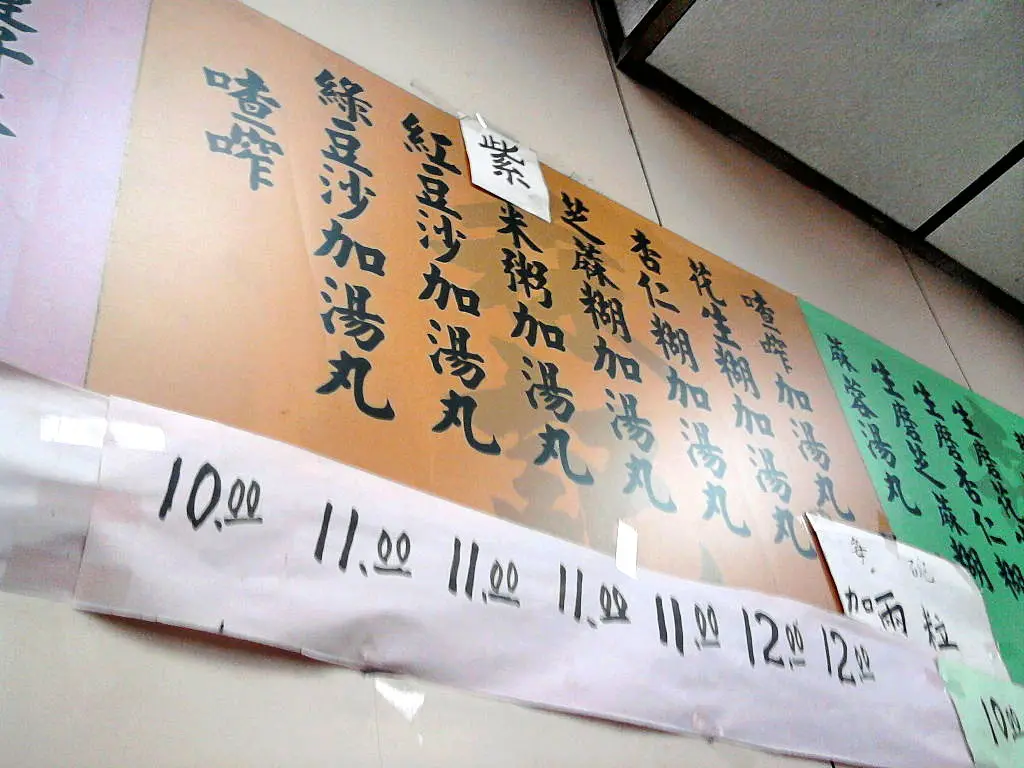 生磨花
生磨杏仁糊
生磨芝蔴糊
蔴蓉湯丸
喳咋加湯丸
花生糊加湯丸
杏仁糊加湯丸
芝蔴糊加湯丸
紫米粥加湯丸
紅豆沙加湯丸
綠豆沙加湯丸
喳咋
10.00 11.00 11.00 11.00 11.00 12.00 12.00
每碗
加兩粒
10.00